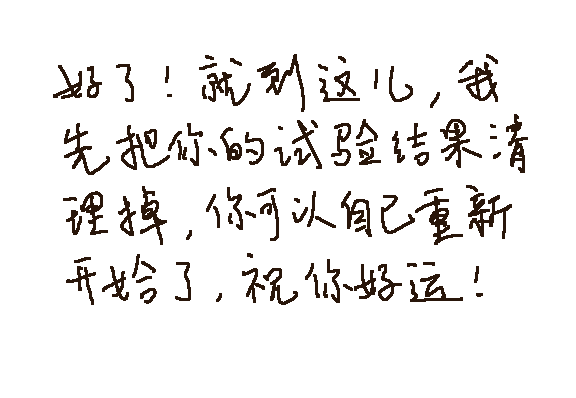 好了！就到这儿，我
先把你的试验结果清
理掉，你可以自己重新
开始了，祝你好运！